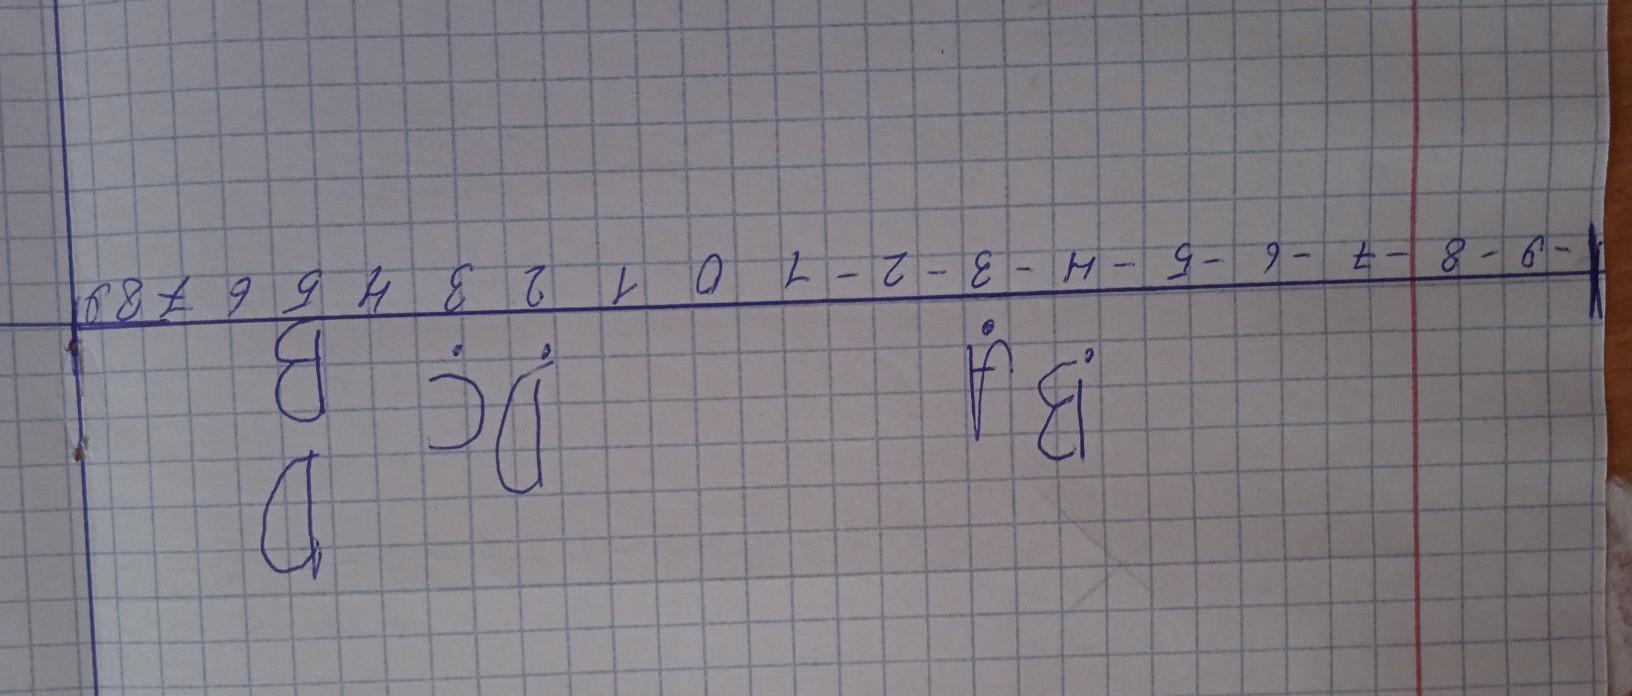 D
B A D C B
-9 -8 -7 -6 -5 -4 -3 -2 -1 0 1 2 3 4 5 6 7 8 9